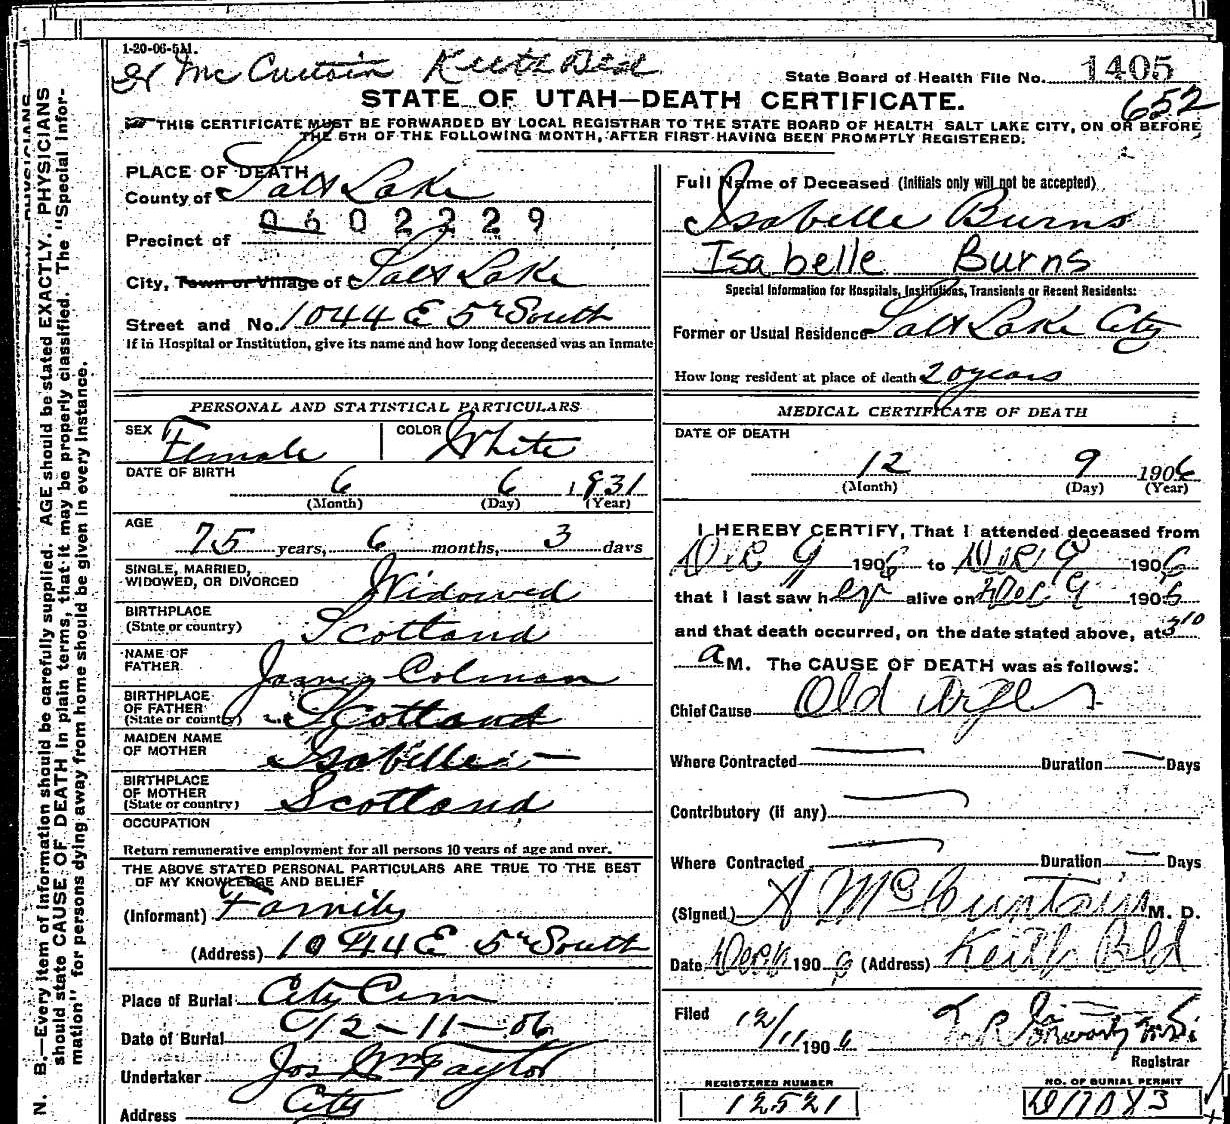 1-20-06-5M.
Mc Curtain Keith Bld
State Board of Health File No. 1405
STATE OF UTAH—DEATH CERTIFICATE.
652
THIS CERTIFICATE MUST BE FORWARDED BY LOCAL REGISTRAR TO THE STATE BOARD OF HEALTH SALT LAKE CITY, ON OR BEFORE
THE 5TH OF THE FOLLOWING MONTH, AFTER FIRST HAVING BEEN PROMPTLY REGISTERED.
PLACE OF DEATH
County of Salt Lake
0602229
Precinct of
City, Town or Village of Salt Lake
Street and No. 1044 E 5th South
If in Hospital or Institution, give its name and how long deceased was an inmate
Full Name of Deceased (Initials only will not be accepted)
Isabelle Burns
Isabelle Burns
Special Information for Hospitals, Institutions, Transients or Recent Residents:
Former or Usual Residence Salt Lake City
How long resident at place of death 20 years
PERSONAL AND STATISTICAL PARTICULARS
SEX Female COLOR White
DATE OF BIRTH 6 6 1931
(Month) (Day) (Year)
AGE
75 years, 6 months, 3 days
SINGLE, MARRIED,
WIDOWED, OR DIVORCED Widowed
BIRTHPLACE
(State or country) Scotland
NAME OF
FATHER James Colman
BIRTHPLACE
OF FATHER
(State or country) Scotland
MAIDEN NAME
OF MOTHER Isabelle —
BIRTHPLACE
OF MOTHER
(State or country) Scotland
OCCUPATION
Return remunerative employment for all persons 10 years of age and over.
THE ABOVE STATED PERSONAL PARTICULARS ARE TRUE TO THE BEST
OF MY KNOWLEDGE AND BELIEF
(Informant) Family
(Address) 1044 E 5th South
Place of Burial City Cem
Date of Burial 12-11-06
Undertaker Jos Wm Taylor
Address City
MEDICAL CERTIFICATE OF DEATH
DATE OF DEATH
12 9 1906
(Month) (Day) (Year)
I HEREBY CERTIFY, That I attended deceased from
Dec 9 1906 to Dec 9 1906
that I last saw her alive on Dec 9 1906
and that death occurred, on the date stated above, at 3 10
a M. The CAUSE OF DEATH was as follows:
Chief Cause Old Age
Where Contracted — Duration — Days
Contributory (if any)
Where Contracted — Duration — Days
(Signed) A McCuntain M. D.
Date Dec 1906 (Address) Keith Bld
Filed 12/11 1906
Registrar
REGISTERED NUMBER
12521
NO. OF BURIAL PERMIT
D17083
N. B.—Every item of information should be carefully supplied. AGE should be stated EXACTLY. PHYSICIANS
should state CAUSE OF DEATH in plain terms, that it may be properly classified. The "Special Infor-
mation" for persons dying away from home should be given in every instance.